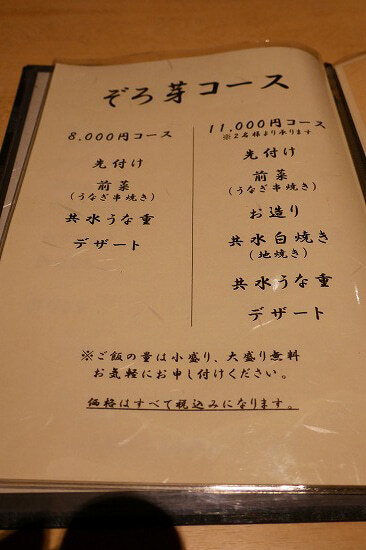 ぞろ芽コース
8,000円コース
先付け
前菜
(うなぎ串焼き)
共水うな重
デザート
11,000円コース
※2名様より承ります
先付け
前菜
(うなぎ串焼き)
お造り
共水白焼き
(地焼き)
共水うな重
デザート
※ご飯の量は小盛り、大盛り無料
お気軽にお申し付けください。
価格はすべて税込みになります。